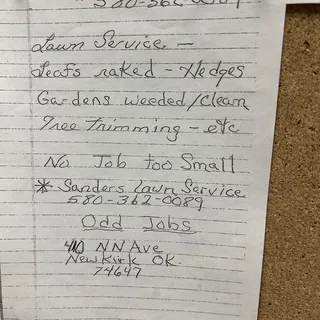 580-362-0089
Lawn Service -
Leafs raked - Hedges
Gardens weeded/Clean
Tree Trimming - etc
No Job too Small
* Sanders Lawn Service
580-362-0089
Odd Jobs
NN Ave
Newkirk OK.
74647